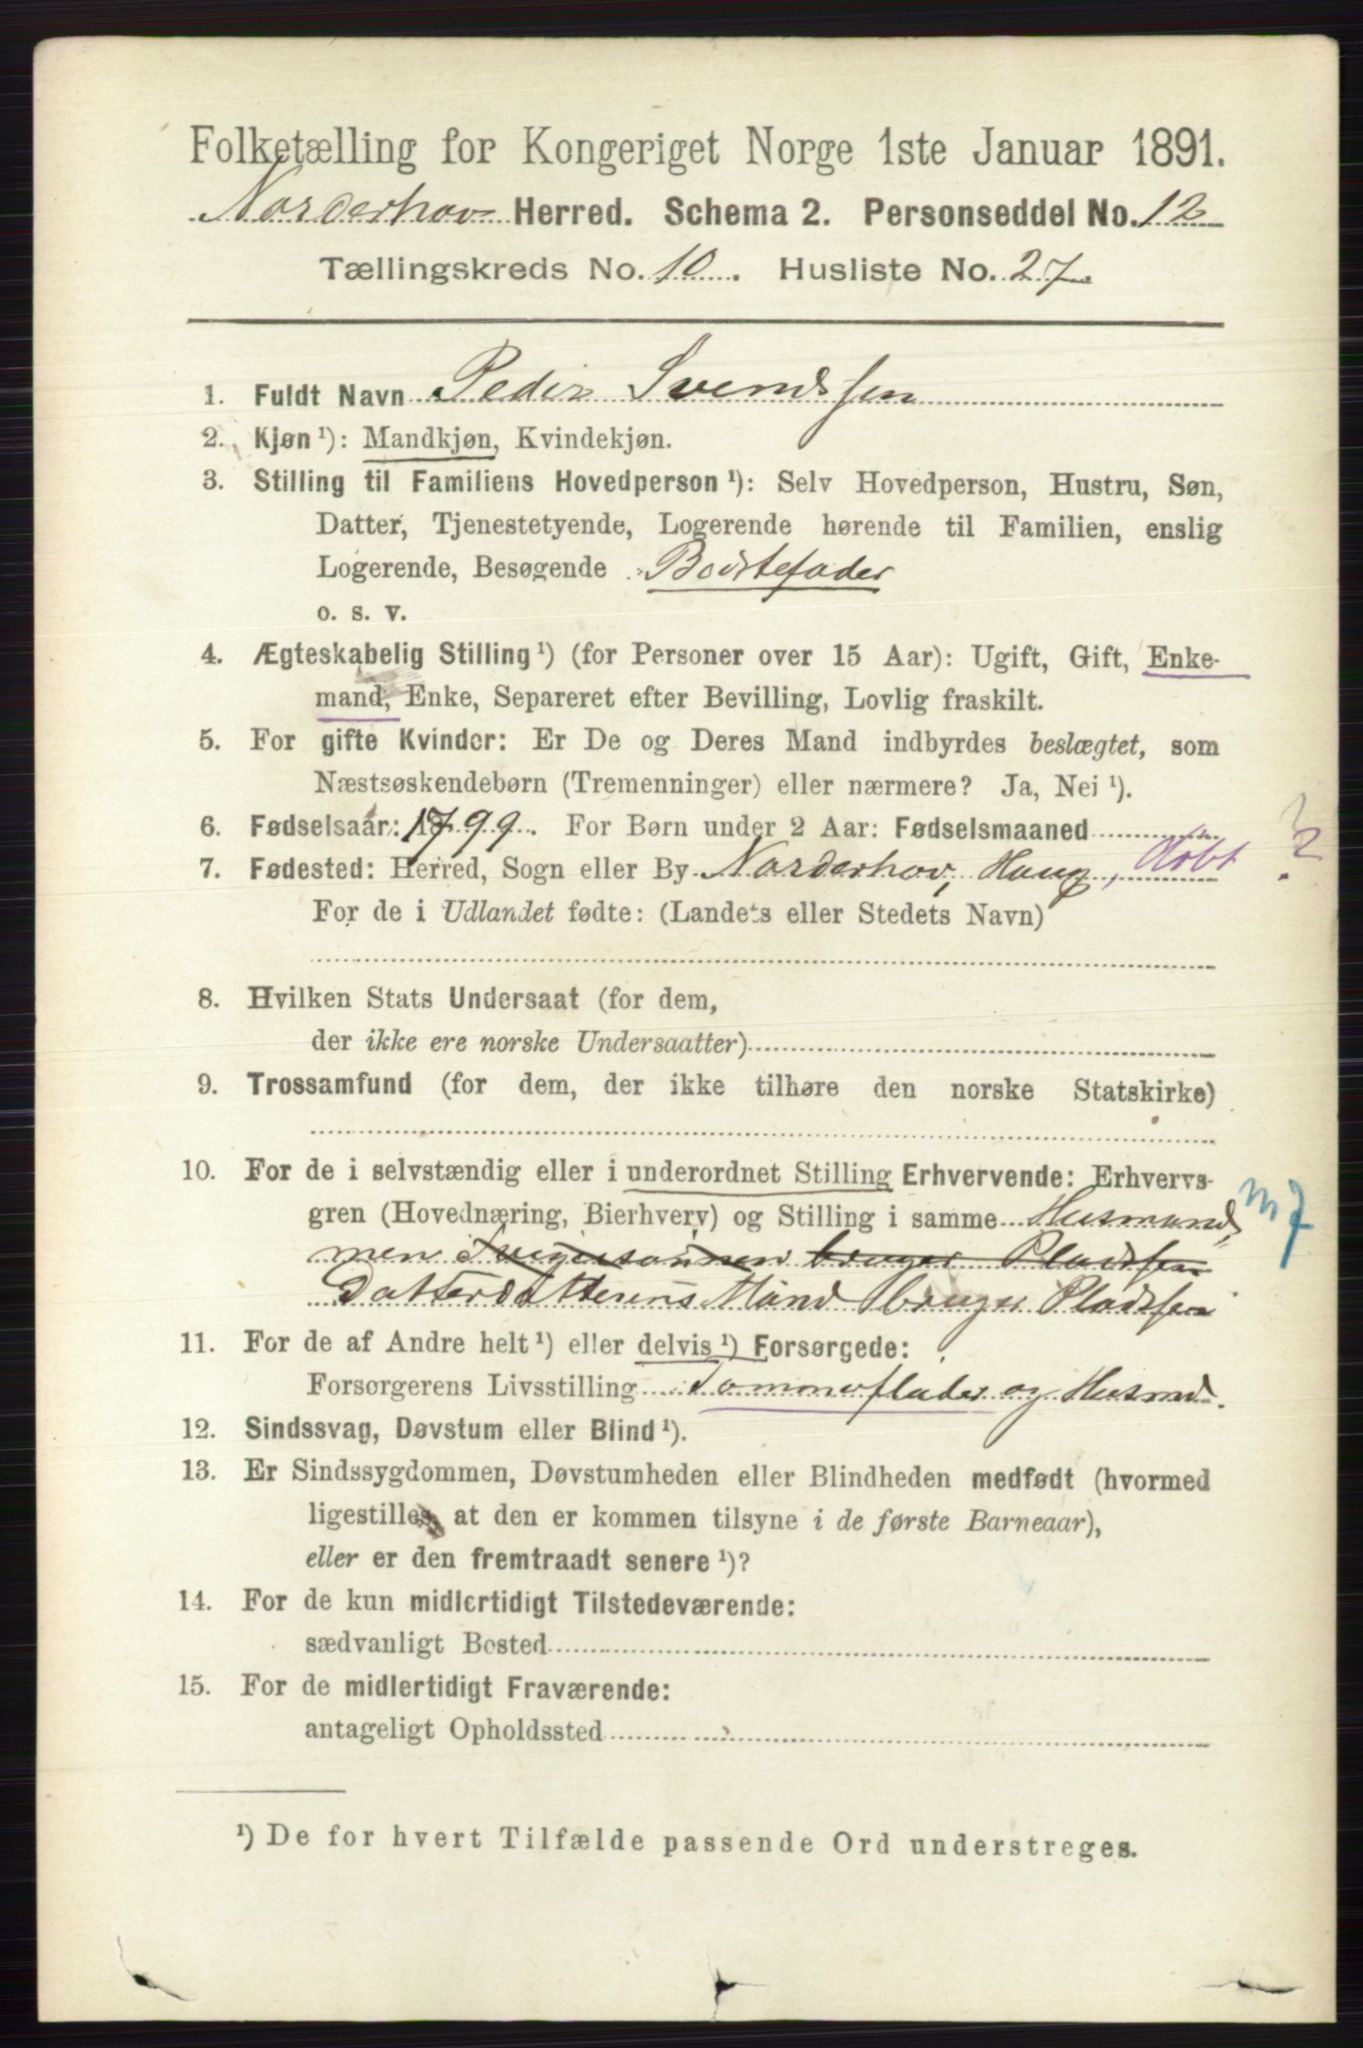 Folketælling for Kongeriget Norge 1ste Januar 1891.
Norderhov Herred. Schema 2. Personseddel No. 12
Tællingskreds No. 10. Husliste No. 27.
1. Fuldt Navn Peder Svendsen
2. Kjøn ¹): Mandkjøn, Kvindekjøn.
3. Stilling til Familiens Hovedperson ¹): Selv Hovedperson, Hustru, Søn,
Datter, Tjenestetyende, Logerende hørende til Familien, enslig
Logerende, Besøgende Bedstefader
o. s. v.
4. Ægteskabelig Stilling ¹) (for Personer over 15 Aar): Ugift, Gift, Enke-
mand, Enke, Separeret efter Bevilling, Lovlig fraskilt.
5. For gifte Kvinder: Er De og Deres Mand indbyrdes beslægtet, som
Næstsøskendebørn (Tremenninger) eller nærmere? Ja, Nei ¹).
6. Fødselsaar: 1799. For Børn under 2 Aar: Fødselsmaaned
7. Fødested: Herred, Sogn eller By Norderhov, Haug, ?
For de i Udlandet fødte: (Landets eller Stedets Navn)
8. Hvilken Stats Undersaat (for dem,
der ikke ere norske Undersaatter)
9. Trossamfund (for dem, der ikke tilhøre den norske Statskirke)
10. For de i selvstændig eller i underordnet Stilling Erhvervende: Erhvervs-
gren (Hovednæring, Bierhverv) og Stilling i samme Husmand, m7
men Svigersønnen bruger Pladsen
Datterdatterens Mand bruger Pladsen
11. For de af Andre helt ¹) eller delvis ¹) Forsørgede:
Forsørgerens Livsstilling Tømmerflåder og Husmd.
12. Sindssvag, Døvstum eller Blind ¹).
13. Er Sindssygdommen, Døvstumheden eller Blindheden medfødt (hvormed
ligestilles, at den er kommen tilsyne i de første Barneaar),
eller er den fremtraadt senere ¹)?
14. For de kun midlertidigt Tilstedeværende:
sædvanligt Bosted
15. For de midlertidigt Fraværende:
antageligt Opholdssted
¹) De for hvert Tilfælde passende Ord understreges.